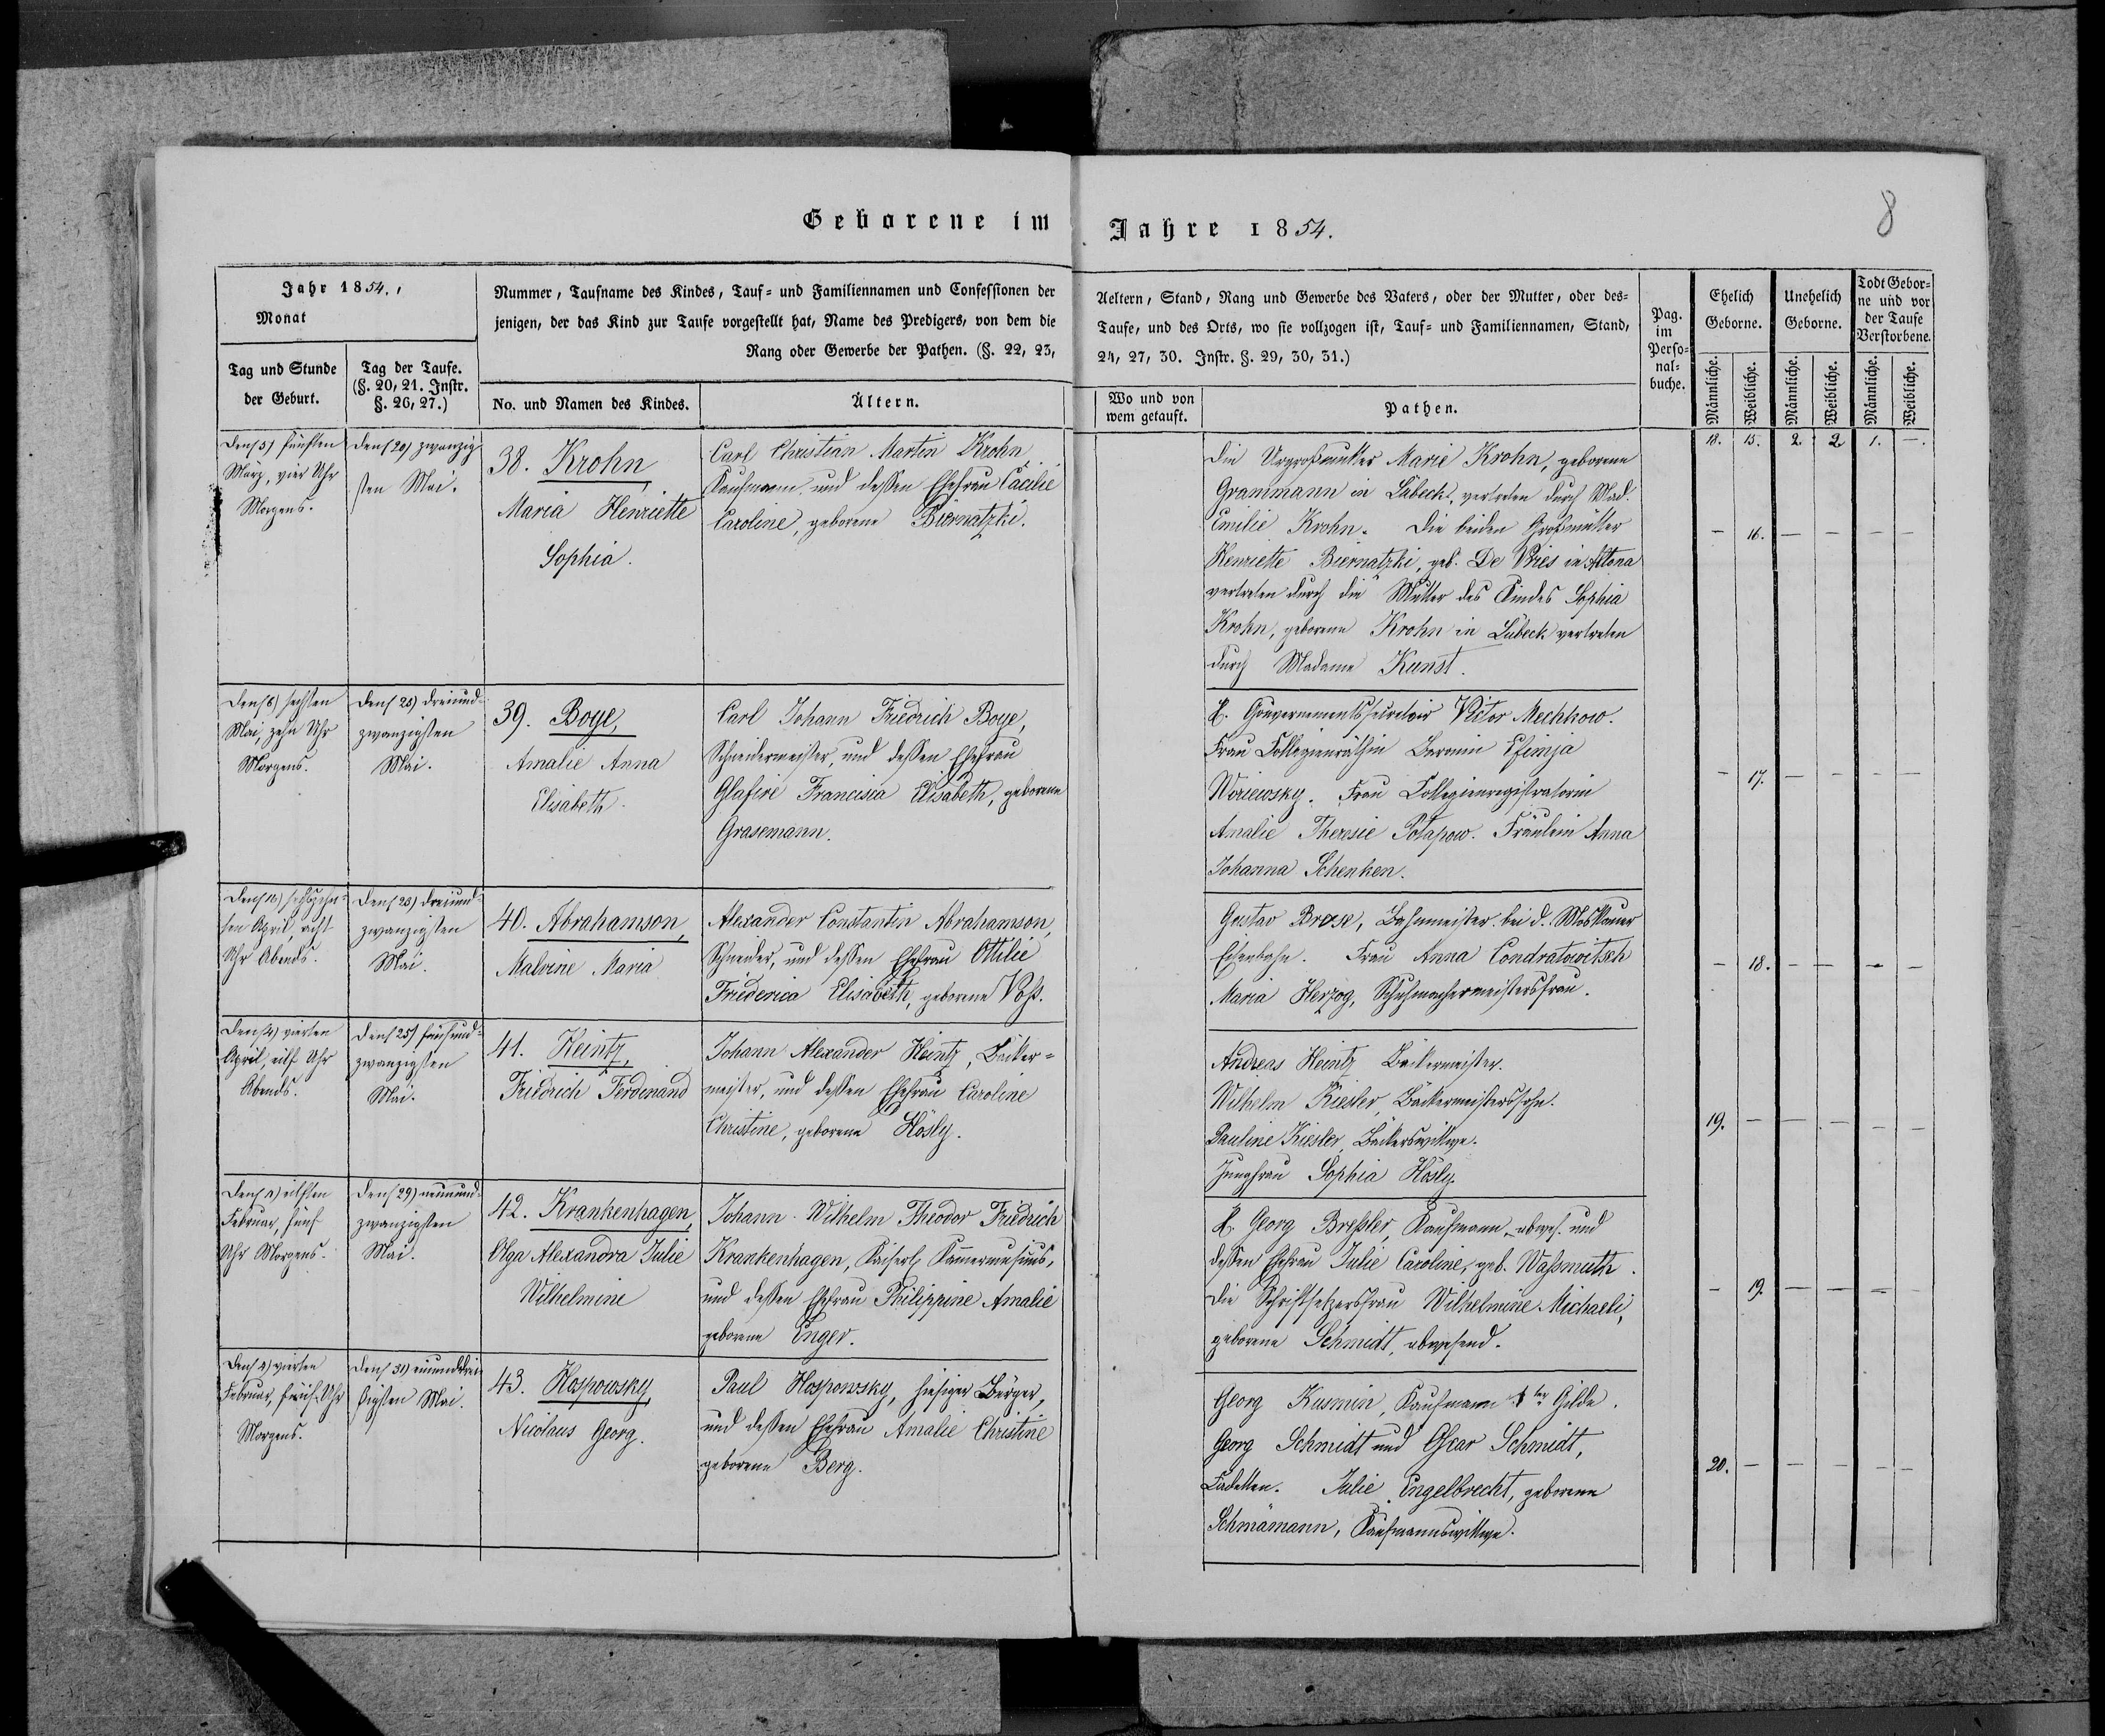 Geborene im Jahre 1854.
8
Jahr 1854.
Monat
Tag und Stunde
der Geburt.
Tag der Taufe.
(§. 20, 21. Instr.
§. 26, 27.)
Nummer, Taufname des Kindes, Tauf- und Familiennamen und Confessionen der
jenigen, der das Kind zur Taufe vorgestellt hat, Name des Predigers, von dem die
Rang oder Gewerbe der Pathen. (§. 22, 23,
No. und Namen des Kindes.
Ältern.
Aeltern, Stand, Rang und Gewerbe des Vaters, oder der Mutter, oder des-
Taufe, und des Orts, wo sie vollzogen ist, Tauf- und Familiennamen, Stand,
24, 27, 30. Instr. §. 29, 30, 31.)
Wo und von
wem getauft.
Pathen.
Pag.
im
Perso-
nal-
buche.
Ehelich
Geborne.
Unehelich
Geborne.
Todt Gebor-
ne und vor
der Taufe
Verstorbene.
Männliche.
Weibliche.
Männliche.
Weibliche.
Männliche.
Weibliche.
18. 15. 2. 2 1. —.
Den (5) fünften
März, vier Uhr
Morgens.
Den (20) zwanzig
sten Mai.
38. Krohn,
Maria Henriette
Sophia.
Carl Christian Martin Krohn,
Kaufmann und dessen Ehefrau Cäcilie
Caroline, geborene Biernatzki.
Die Urgroßmutter Marie Krohn, geborene
Grammann in Lübeck, vertreten durch Mad.
Emilie Krohn. Die beiden Großmütter
Henriette Biernatzki, geb. De Vries in Altona
vertreten durch die Mutter des Kindes Sophia
Krohn, geborene Krohn in Lübeck vertreten
durch Madame Kunst.
— 16. — — — —
Den (6) sechsten
Mai, zehn Uhr
Morgens.
Den (23) dreiund-
zwanzigsten
Mai.
39. Boye,
Amalie Anna
Elisabeth.
Carl Johann Friedrich Boye,
Schneidermeister, und dessen Ehefrau
Glafire Francisca Elisabeth, geborene
Grasemann.
H. Gouvernementssecretair Victor Mechkow.
Frau Collegienräthin Baronin Efimja
Woriewsky. Frau Collegienregistratorin
Amalie Theresie Potapow. Fräulein Anna
Johanna Schenken.
— 17. — — — —
Den (16) sechszehn-
ten April, acht
Uhr Abends.
Den (23) dreiund-
zwanzigsten
Mai.
40. Abrahamson,
Malvine Maria
Alexander Constantin Abrahamson,
Schneider, und dessen Ehefrau Ottilie
Friederica Elisabeth, geborene Voß.
Gustav Brose, Bahnmeister bei d. Moskauer
Eisenbahn. Frau Anna Condratowitsch
Maria Herzog, Schuhmachermeistersfrau.
— 18. — — — —
Den (4) vierten
April, eilf Uhr
Abends.
Den (25) fünfund-
zwanzigsten
Mai.
41. Heintz,
Friedrich Ferdinand
Johann Alexander Heintz, Bäcker-
meister, und dessen Ehefrau Caroline
Christine, geborene Hösly.
Andreas Heintz Bäckermeister.
Wilhelm Kiesler, Bäckermeisterssohn.
Pauline Kiesler, Bäckerswittwe.
Jungfrau Sophia Hösly.
19. — — — — —
Den (11) eilften
Februar, fünf
Uhr Morgens.
Den (29) neunund-
zwanzigsten
Mai.
42. Krankenhagen,
Olga Alexandra Julie
Wilhelmine
Johann Wilhelm Theodor Friedrich
Krankenhagen, Kaiserl. Kammermusikus,
und dessen Ehefrau Philippine Amalie
geborene Unger.
H. Georg Breßler, Kaufmann, abwes. und
dessen Ehefrau Julie Caroline, geb. Waßmuth.
Die Schriftsetzersfrau Wilhelmine Michaeli,
geborene Schmidt, abwesend.
— 19. — — — —
Den (4) vierten
Februar, fünf Uhr
Morgens.
Den (31) einunddrei
ßigsten Mai.
43. Hospowsky,
Nicolaus Georg.
Paul Hospowsky, hiesiger Bürger,
und dessen Ehefrau Amalie Christine
geborene Berg.
Georg Kusmin, Kaufmann 1ter Gilde.
Georg Schmidt und Oscar Schmidt,
Cadetten. Julie Engelbrecht, geborene
Schmämann, Kaufmannswittwe.
20. — — — — —